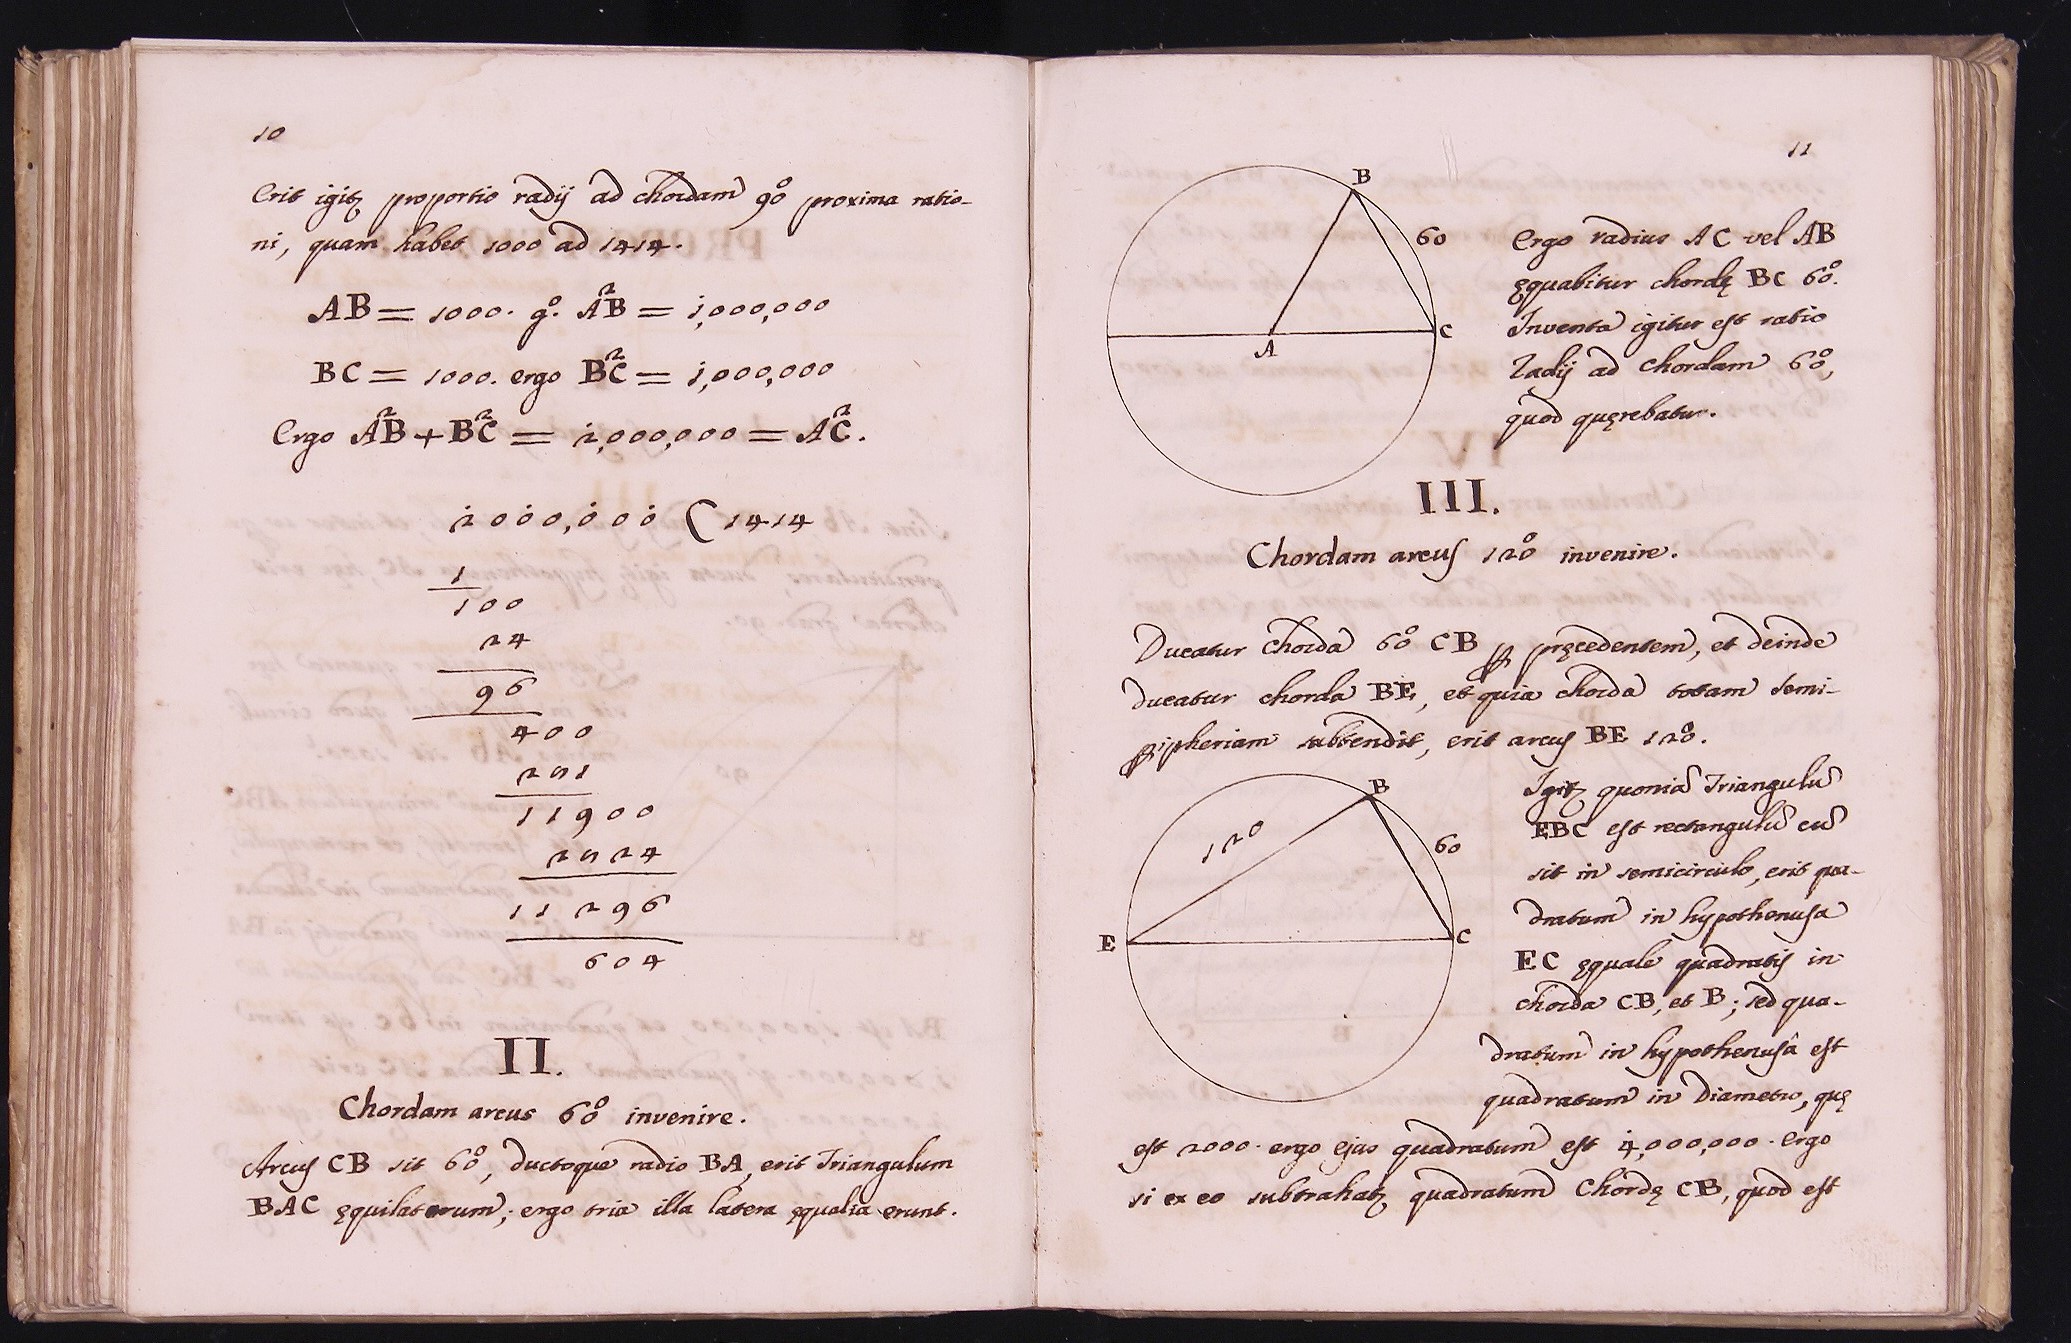 10
Erit igitꝫ proportio radij ad chordam 90° proxima ratio-
ni, quam habet 1000 ad 1414.
AB = 1000. gº. A²B = 1,000,000
BC = 1000. ergo B²C = 1,000,000
Ergo A²B + B²C = 2,000,000 = A²C.
2000,000 ( 1414
1
100
24
96
400
281
11900
2824
11296
604
II.
Chordam arcus 60° invenire.
Arcus CB sit 60°, ductoque radio BA, erit Triangulum
BAC ęquilaterum; ergo tria illa latera ęqualia erunt.
11
B
60
C
A
Ergo radius AC vel AB
ęquabitur chordę BC 60°.
Inventa igitur est ratio
Radij ad chordam 60°,
quod quęrebatur.
III.
Chordam arcus 120° invenire.
Ducatur chorda 60° CB ꝑ pręcedentem, et deinde
ducatur chorda BE, et quia chorda totam semi-
ꝑipheriam subtendit, erit arcus BE 120°.
B
120
60
E
C
Igitꝫ quoniā Triangulū
EBC est rectangulū cū
sit in semicirculo, erit qua-
dratum in hypothenusa
EC ęquale quadratis in
chorda CB, et B; sed qua-
dratum in hypothenusâ est
quadratum in Diametro, quę
est 2000. ergo ejus quadratum est 4,000,000. ergo
si ex eo subtrahatꝫ quadratum Chordę CB, quod est